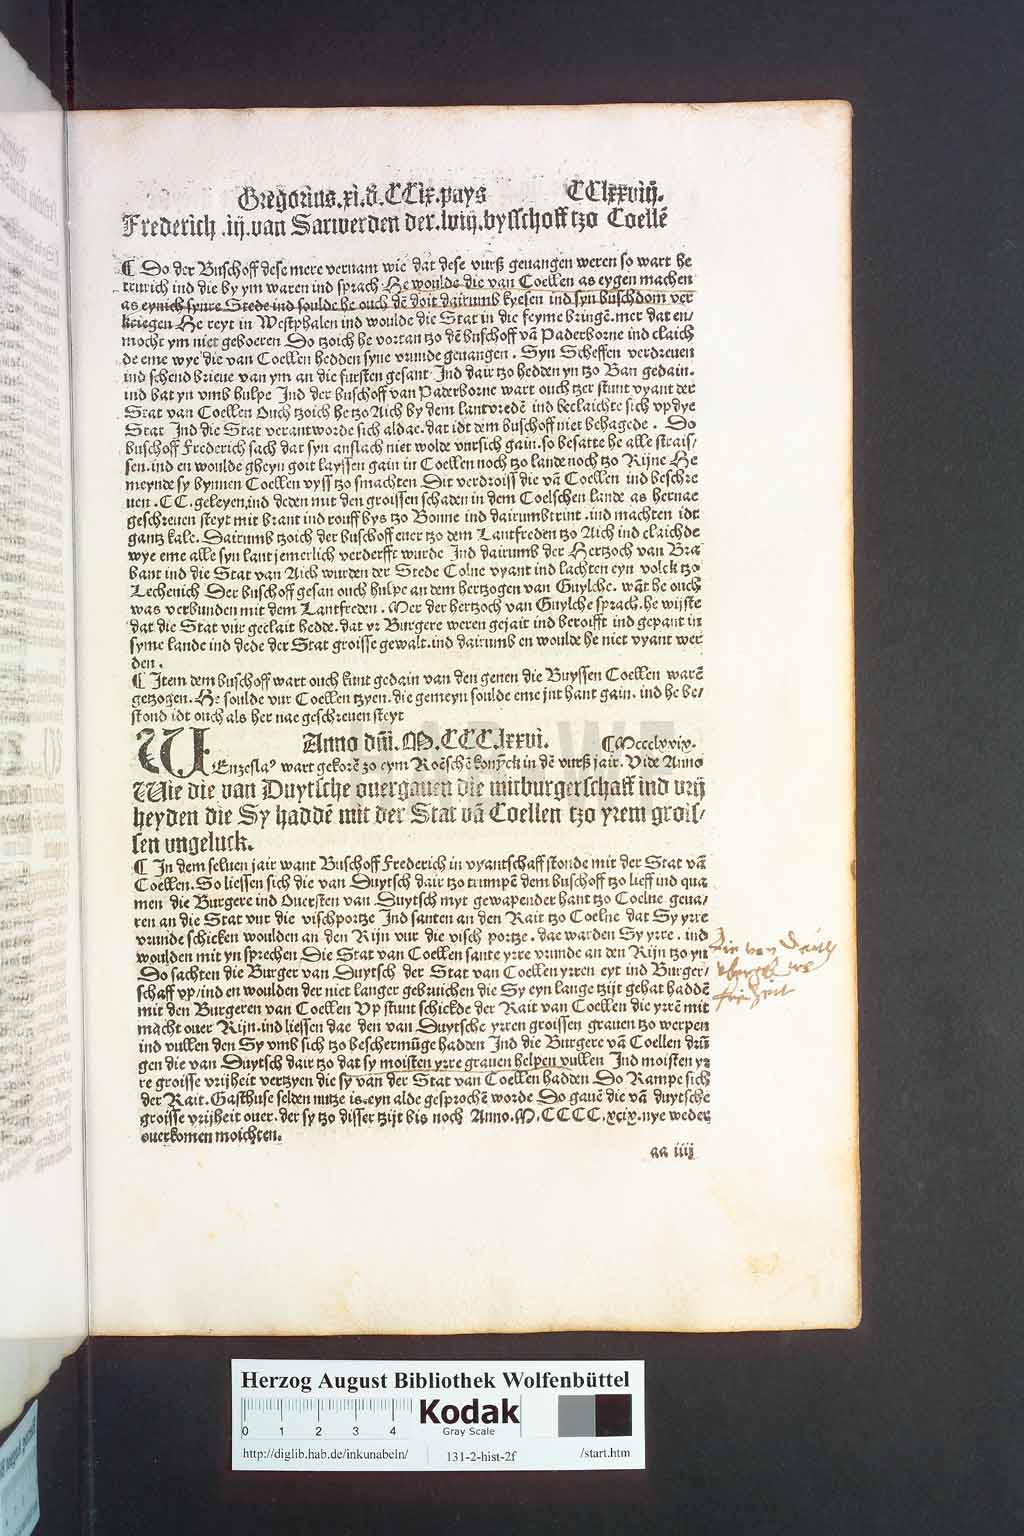 Gregorius.xi.d̄.CCix.pays CClxxviij.
Frederich .iij. van Sarwerden der.lviij.bysschoff tzo Coellē
¶ Do der Buschoff dese mere vernam wie dat dese vurß geuangen weren so wart he
trurich ind die by ym waren ind sprach He woulde die van Coellen as eygen machen
as eynich synre Stede ind soulde he ouch dē doit dairumb kyesen ind syn buschdom ver
kriegen He reyt in Westphalen ind woulde die Stat in die feyme bringē.mer dat en/
mocht ym niet geboeren Do tzoich he vortan tzo dē buschoff vā Paderborne ind claich
de eme wye die van Coellen hedden syne vrunde geuangen . Syn Scheffen verdreuen
ind schend brieue van ym an die fursten gesant Ind dair tzo hedden yn tzo Ban gedain.
ind bat yn vmb hulpe Ind der buschoff van Paderborne wart ouch tzer stunt vyant der
Stat van Coellen Ouch tzoich he tzo Aich by dem lantvredē ind beclaichte sich vp dye
Stat Ind die Stat verantworde sich aldae. dat idt dem buschoff niet behagede . Do
buschoff Frederich sach dat syn anslach niet wolde vursich gain.so besatte he alle strais/
sen.ind en woulde gheyn goit layssen gain in Coellen noch tzo lande noch tzo Rijne He
meynde sy bynnen Coellen vyss tzo smachten Dit verdroiss die vā Coellen ind beschre
uen .CC.geleyen,ind deden mit den groissen schaden in dem Coelschen lande as hernae
geschreuen steyt mit brant ind rouff bys tzo Bonne ind dairumbtrint .ind machten idt
gantz kale. Dairumb tzoich der buschoff euer tzo dem Lantfreden tzo Aich ind claichde
wye eme alle syn lant jemerlich verderfft wurde Ind dairumb der Hertzoch van Bra
bant ind die Stat van Aich wurden der Stede Colne vyant ind lachten eyn volck tzo
Lechenich Der buschoff gesan ouch hulpe an dem hertzogen van Guylche. wāt he ouch
was verbunden mit dem Lantfreden . Mer der hertzoch van Guylche sprach.he wijste
dat die Stat vur geclait hedde.dat yr Burgere weren gejait ind beroifft ind gepant in
syme lande ind dede der Stat groisse gewalt.ind dairumb en woulde he niet vyant wer
den .
¶ Item dem buschoff wart ouch kunt gedain van den genen die Buyssen Coellen warē
getzogen. He soulde vur Coellen tzyen.die gemeyn soulde eme jnt hant gain. ind he be/
stond idt ouch als her nae geschreuen steyt
Anno dm̄.M.CCC.lxxvi. ¶Mccclxxix.
WEnzeslaꝰ wart gekorē zo eym Roēschē konyck in dē vurß jair. Vide Anno
Wie die van Duytsche ouergauen die mitburgerschaff ind vrij
heyden die Sy haddē mit der Stat vā Coellen tzo yrem grois/
sen vngeluck.
¶ In dem seluen jair want Buschoff Frederich in vyantschaff stonde mit der Stat vā
Coellen.So liessen sich die van Duytsch dair tzo trumpē dem buschoff tzo lieff ind qua
men die Burgere ind Ouersten van Duytsch myt gewapender hant tzo Coelne geua/
ren an die Stat vur die vischportze Ind santen an den Rait tzo Coelne dat Sy yrre
vrunde schicken woulden an den Rijn vur die visch portze. dae warden Sy yrre. ind
woulden mit yn sprechen Die Stat van Coellen sante yrre vrunde an den Rijn tzo yn
Do sachten die Burger van Duytsch der Stat van Coellen yrren eyt ind Burger/
schaff vp/ind en woulden der niet langer gebruichen die Sy eyn lange tzijt gehat haddē
mit den Burgeren van Coellen Vp stunt schickde der Rait van Coellen die yrrē mit
macht ouer Rijn.ind liessen dae den van Duytsche yrren groissen grauen tzo werpen
ind vullen den Sy vmb sich tzo beschermūge hadden Ind die Burgere vā Coellen drū
gen die van Duytsch dair tzo dat sy moisten yrre grauen helpen vullen Ind moisten yr
re groisse vrijheit vertzyen die sy van der Stat van Coellen hadden Do Rampe sich
der Rait. Gasthuse selden nutze is.eyn alde gesprochē worde Do gauē die vā duytsche
groisse vrijheit ouer.der sy tzo disser tzijt bis noch Anno.M.CCCC.xcix.nye weder
ouerkomen moichten.
aa iiij
Die von Deutz
vbergeben
freiheit
Herzog August Bibliothek Wolfenbüttel
0 1 2 3 4
Kodak
Gray Scale
http://diglib.hab.de/inkunabeln/ 131-2-hist-2f /start.htm